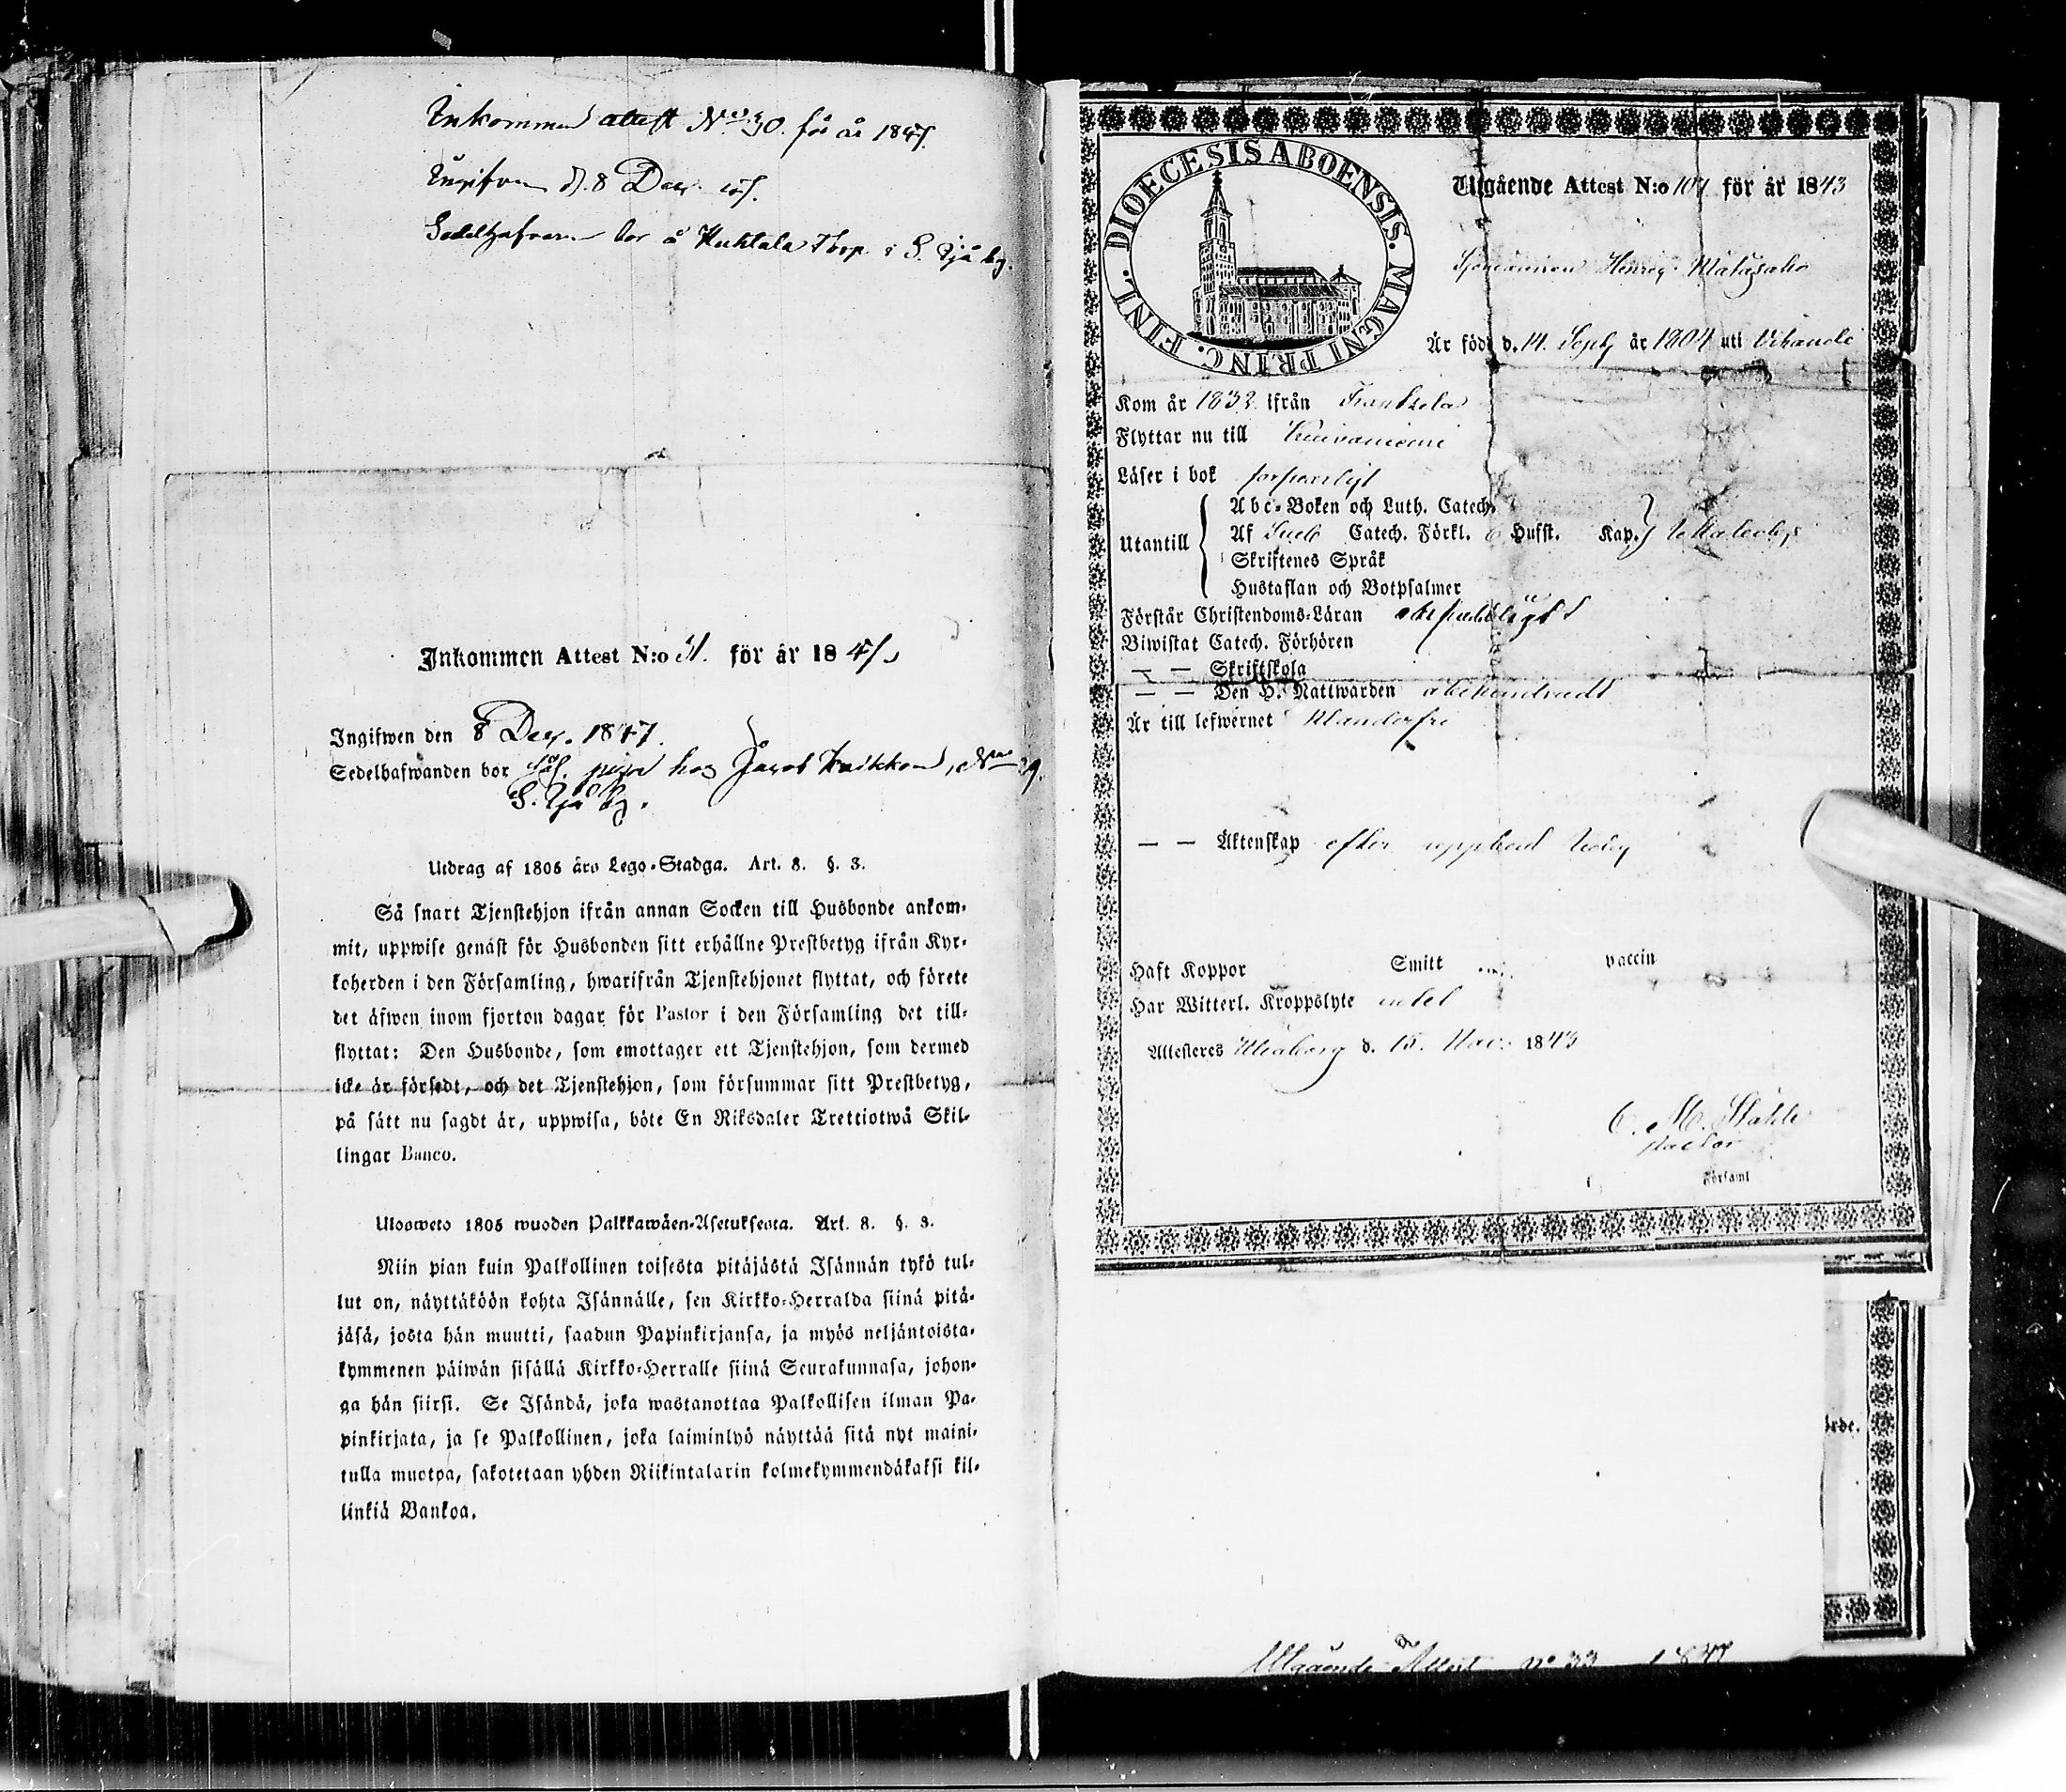 Inkommen attest N:o 30. för år 1847.
Ingifven d. 8 Decr.
Sedelhafvaren bor å Huhtala Thorp i S. Ijå by.
Inkommen Attest N:o 31. för år 1847
Ingifwen den 8 Decr. 1847.
Sedelhafwanden bor hos Jacob
S. Ijå by.
Utdrag af 1805 års Lego-Stadga. Art. 8. §. 3.
Så snart Tjenstehjon ifrån annan Socken till Husbonde ankom-
mit, uppwise genast för Husbonden sitt erhållne Prestbetyg ifrån Kyr-
koherden i den Församling, hwarifrån Tjenstehjonet flyttat, och förete
det äfwen inom fjorton dagar för Pastor i den Församling det till-
flyttat: Den Husbonde, som emottager ett Tjenstehjon, som dermed
icke är försedt, och det Tjenstehjon, som försummar sitt Prestbetyg,
på sätt nu sagdt är, uppwisa, böte En Riksdaler Trettiotwå Skil-
lingar Banco.
Ulosweto 1805 wuoden Palkkawäen-Asetuksesta. Art. 8. §. 3.
Niin pian kuin Palkollinen toisesta pitäjästä Isännän tykö tul-
lut on, näyttäköön kohta Isännälle, sen Kirkko-Herralda siinä pitä-
jäsä, josta hän muutti, saadun Papinkirjansa, ja myös neljäntoista-
kymmenen päiwän sisällä Kirkko-Herralle siinä Seurakunnasa, johon-
ga hän siirsi. Se Isändä, joka wastanottaa Palkollisen ilman Pa-
pinkirjata, ja se Palkollinen, joka laiminlyö näyttää sitä nyt maini-
tulla muotoa, sakotetaan yhden Riikintalarin kolmekymmendäkaksi kil-
linkiä Bankoa.
DIOECESIS ABOENSIS. MAGNI PRINC. FINL.
Utgående Attest N:o 107 för år 1843
Henr. Matasaho
Är född d. 14. Sept. år 1804 uti Vihandi
Kom år 1832 ifrån Frantzila
Flyttar nu till Kuivaniemi
Läser i bok försvarligt
Utantill
Abc-Boken och Luth. Catech.
Af Sveb Catech. Förkl. 6 Hufst. Kap.
Skriftenes Språk
Hustaflan och Botpsalmer
Förstår Christendoms-Läran
Biwistat Catech. Förhören
— — Skriftskola
— — Den H. Nattwarden
Är till lefwernet klanderfri
— — Äktenskap efter
Haft Koppor Smitt vaccin
Har Witterl. Kroppslyte intet
Attesteres Uleåborg d. 15. Nov. 1843
C. M. Ståhle
Pastor
Församl
örde.
Utgående Attest No 33 1847